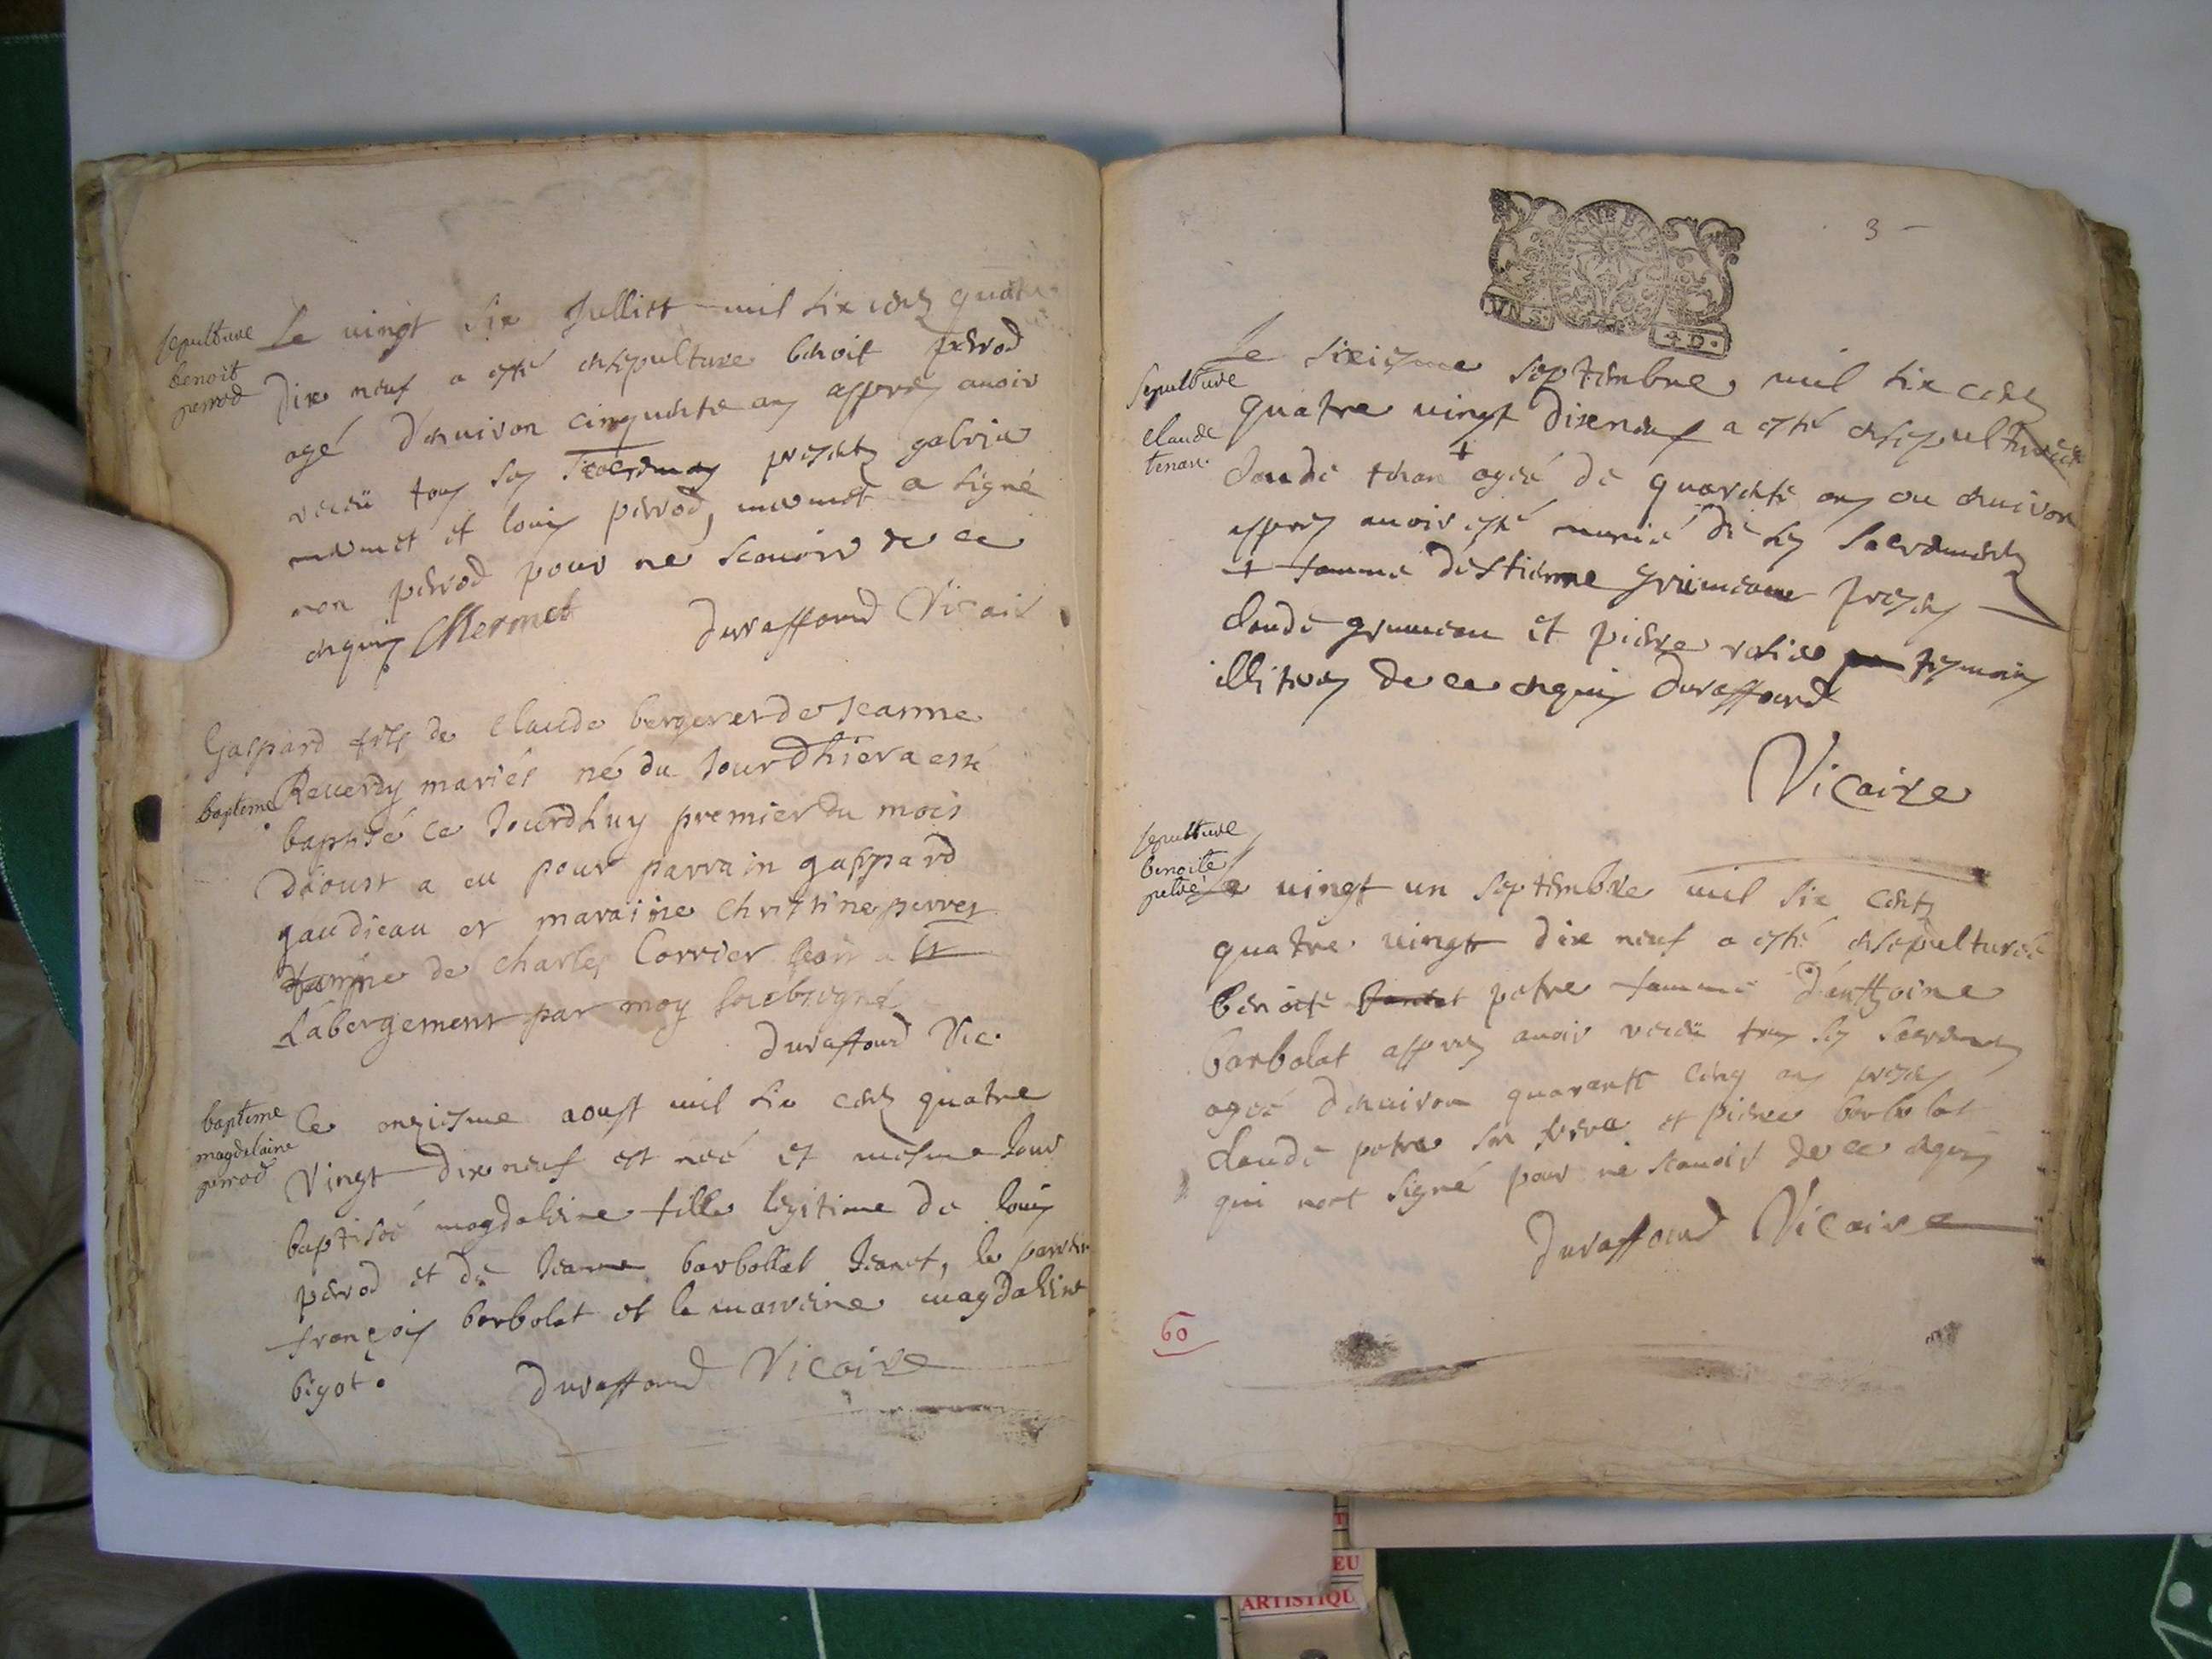 sepulture
benoit
perrod
Le vingt six Jullitt mil six cens quatre
Dix neuf a esté ensepulture benoit perrod
agé denuiron cinquante ans appres auoir
receü tous ses sacremens presents gabriel
mermet et louis perrod, mermet a signé
non perrod pour ne scauoir de ce
enquis CMermet Duraffourd Vicair
Gaspard fils de Claude bergeret de Jeanne
bapteme
Reuerdy mariés né du Jour Dhier a esté
baptisé ce Jourdhuy premier du mois
Daoust a eu pour parrain gaspard
gaudieau et maraine Christine perret
famme de Charles Corrier
Labergement par moy soubsigné
Duraffourd Vic.
bapteme
magdelaine
perrod
Ce onziesme aoust mil six cens quatre
Vingt dix neuf est née et mesme Jour
baptisée magdeleine fille legitime de louis
perrod et de Jeanne barbollat Jeanet, le parrein
françois barbolat et la marreine magdeleine
bigot. Duraffourd Vicaire
3
GNE ET
VNS. 4 D.
Sepulture
claude
tenan.
Le sixiesme septembre mil six cens
quatre vingt dixneuf a esté ensepulturée
claude tenan + agée de quarente ans ou enuiron
appres auoir esté munie de ses sacremens
+ famme destienne grumeau presens
claude grumeau et pierre ratier tesmoins
illitires de ce enquis Duraffourd
Vicaire
sepulture
benoite
petre
Le vingt un septembre mil six cents
quatre vingt dix neuf a esté ensepulturée
benoite petre famme d'anthoine
barbolat appres auoir receü tous ses sacremens
agée denuiron quarante cinq ans presens
claude petre son frere et pierre barbolat
qui nont signé pour ne scauoir de ce enquis
Duraffourd Vicaire
60
EU
ARTISTIQU